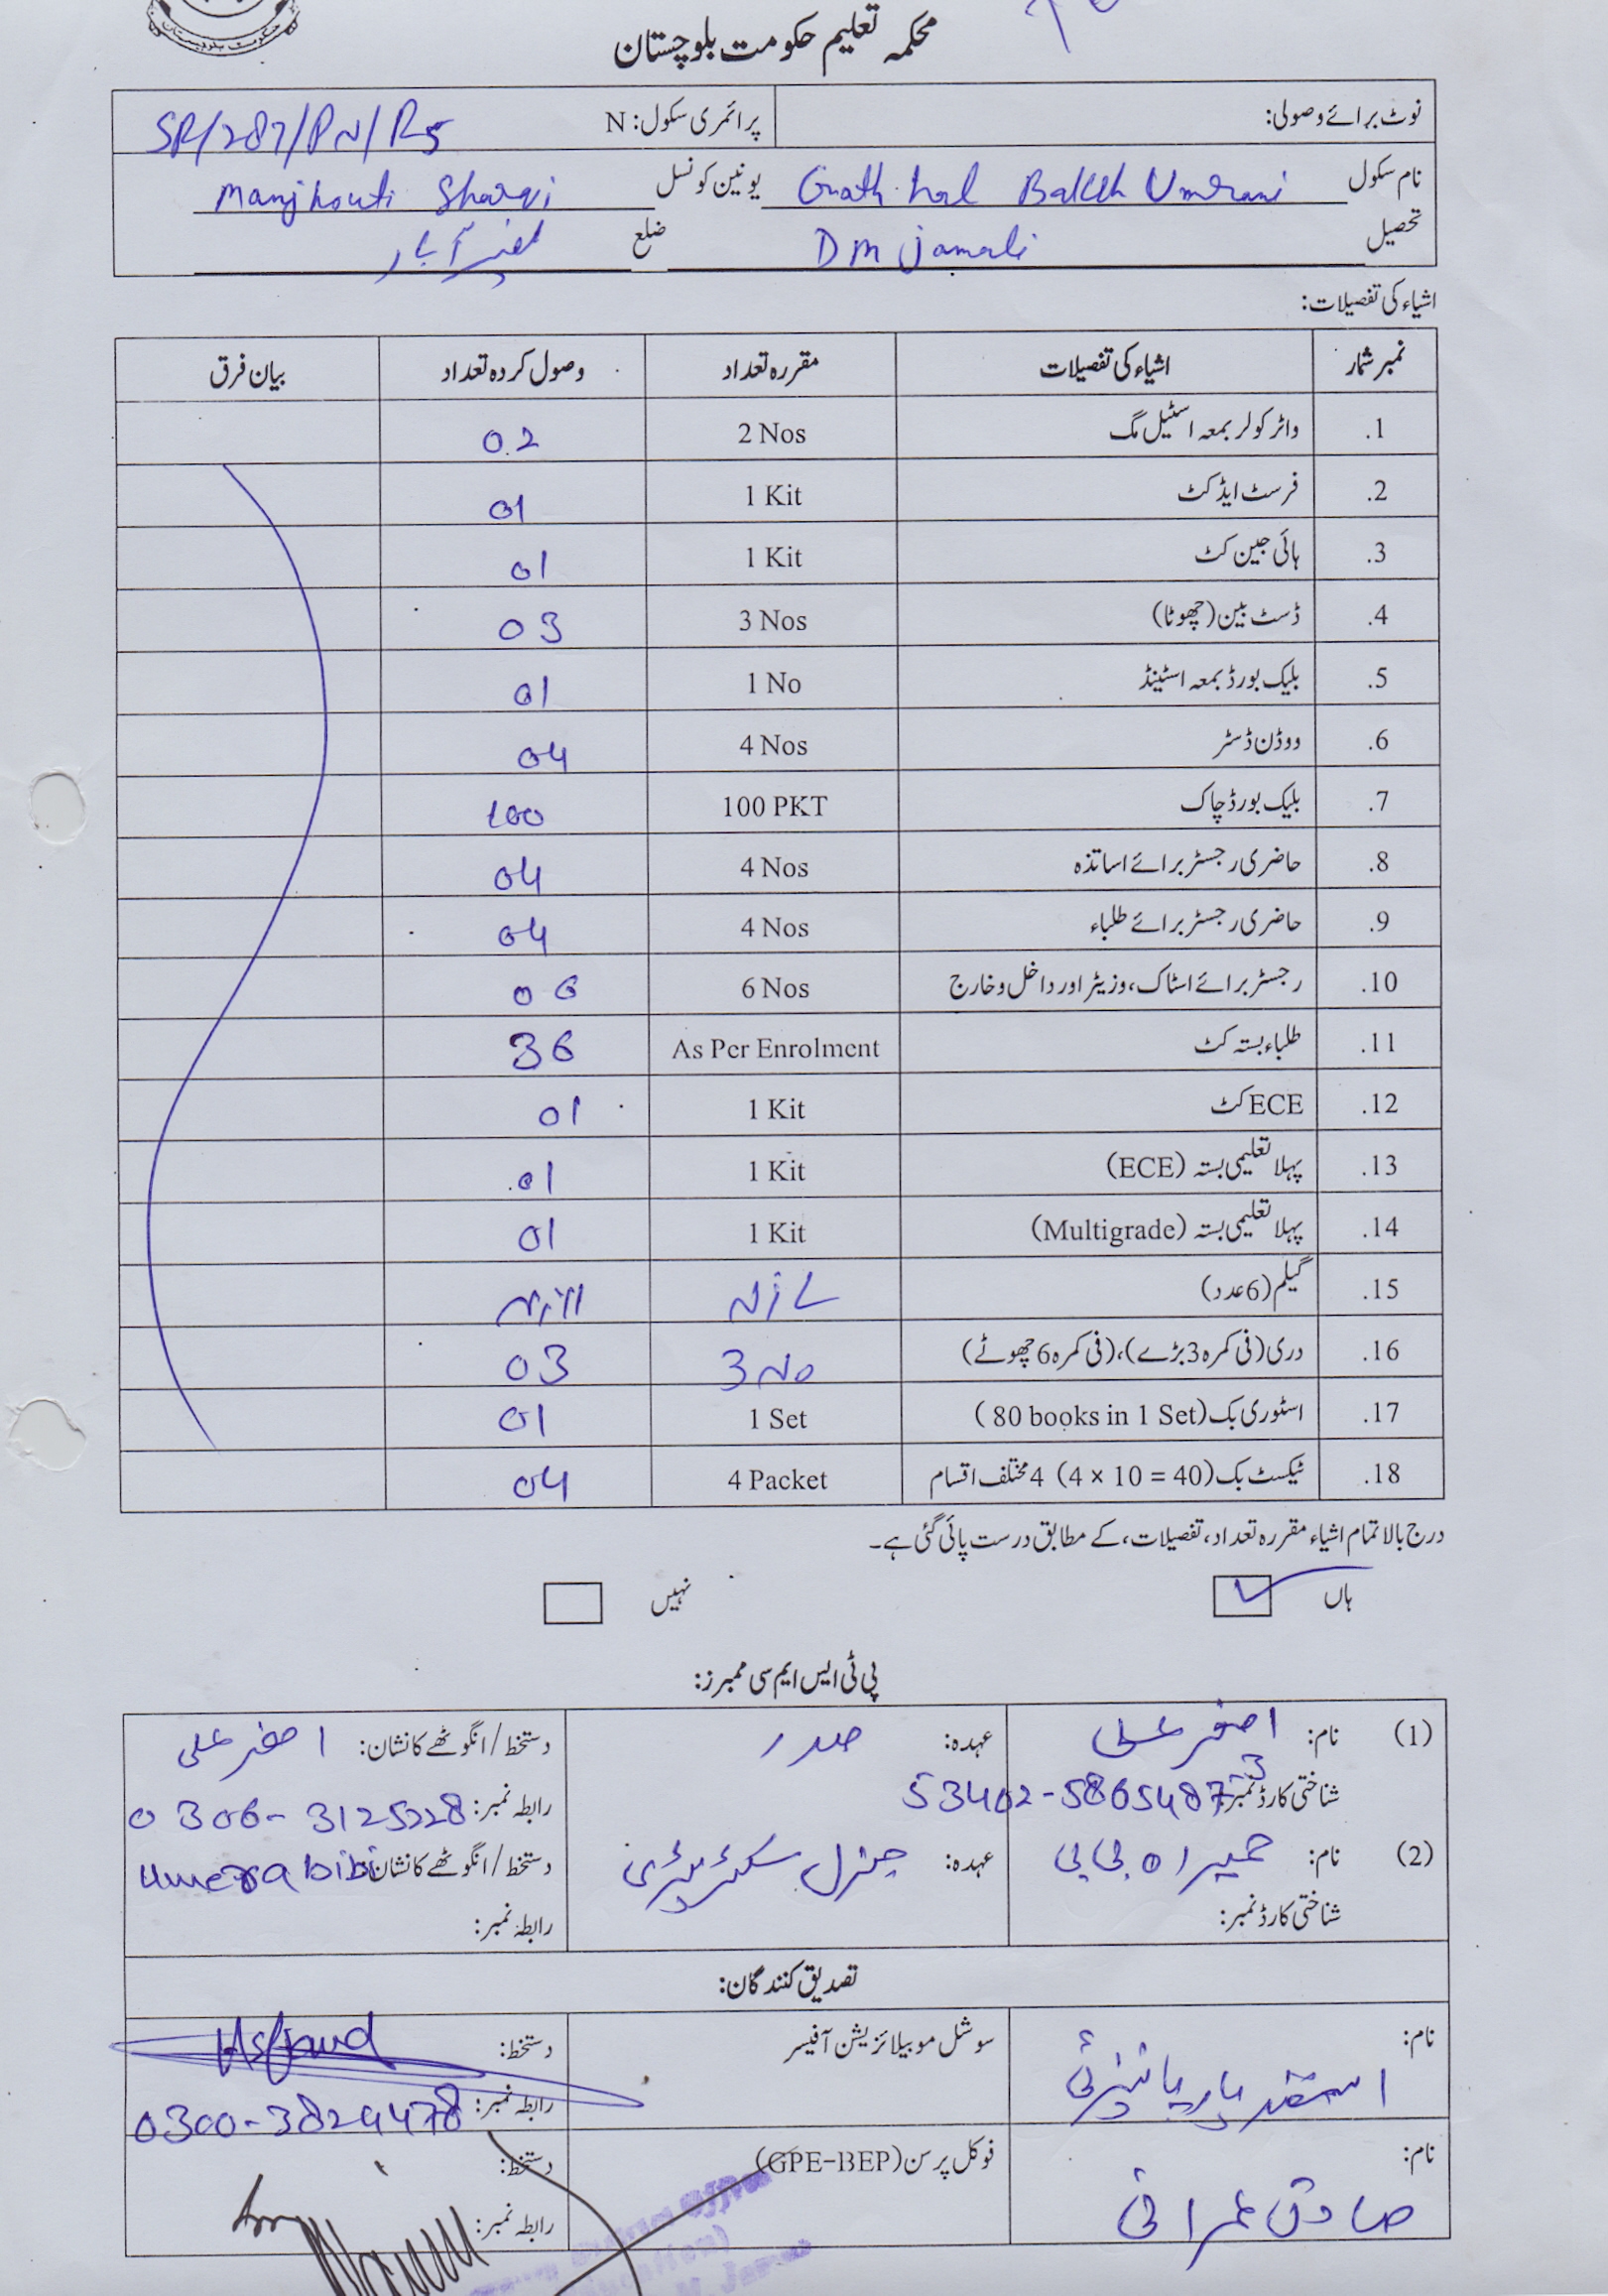 حکومت بلوچستان
محکمہ تعلیم حکومت بلوچستان
نوٹ برائے وصولی: پرائمری سکول: N SR/287/PN/R5
نام سکول Goath hal Baksh Umrani یونین کونسل Manjhouti Sharqi
تحصیل DM jamali ضلع نصیرآباد
اشیاء کی تفصیلات:
نمبر شمار اشیاء کی تفصیلات مقررہ تعداد وصول کردہ تعداد بیان فرق
1. واٹر کولر بمعہ اسٹیل مگ 2 Nos 02
2. فرسٹ ایڈ کٹ 1 Kit 01
3. ہائی جین کٹ 1 Kit 01
4. ڈسٹ بین (چھوٹا) 3 Nos 03
5. بلیک بورڈ بمعہ اسٹینڈ 1 No 01
6. ووڈن ڈسٹر 4 Nos 04
7. بلیک بورڈ چاک 100 PKT 100
8. حاضری رجسٹر برائے اساتذہ 4 Nos 04
9. حاضری رجسٹر برائے طلباء 4 Nos 04
10. رجسٹر برائے اسٹاک، وزیٹر اور داخل و خارج 6 Nos 06
11. طلباء بستہ کٹ As Per Enrolment 36
12. ECE کٹ 1 Kit 01
13. پہلا تعلیمی بستہ (ECE) 1 Kit 01
14. پہلا تعلیمی بستہ (Multigrade) 1 Kit 01
15. گیلم (6 عدد) NiL Nill
16. دری (فی کمرہ 3 بڑے)، (فی کمرہ 6 چھوٹے) 3 No 03
17. اسٹوری بک (80 books in 1 Set) 1 Set 01
18. ٹیکسٹ بک (4 × 10 = 40) 4 مختلف اقسام 4 Packet 04
درج بالا تمام اشیاء مقررہ تعداد، تفصیلات، کے مطابق درست پائی گئی ہے۔
ہاں ✓ نہیں
پی ٹی ایس ایم سی ممبرز:
(1) نام: اصغر علی عہدہ: صدر دستخط/انگوٹھے کا نشان: اصغر علی
شناختی کارڈ نمبر: 53402-5865487-3 رابطہ نمبر: 0306-3125228
(2) نام: حمیراہ بی بی عہدہ: جنرل سکریٹری دستخط/انگوٹھے کا نشان: Umera bibi
شناختی کارڈ نمبر: رابطہ نمبر:
تصدیق کنندگان:
نام: اسفندیار سوشل موبیلائزیشن آفیسر دستخط:
رابطہ نمبر: 0300-3824478
نام: صادق عمرانی فوکل پرسن (GPE-BEP) دستخط:
رابطہ نمبر: